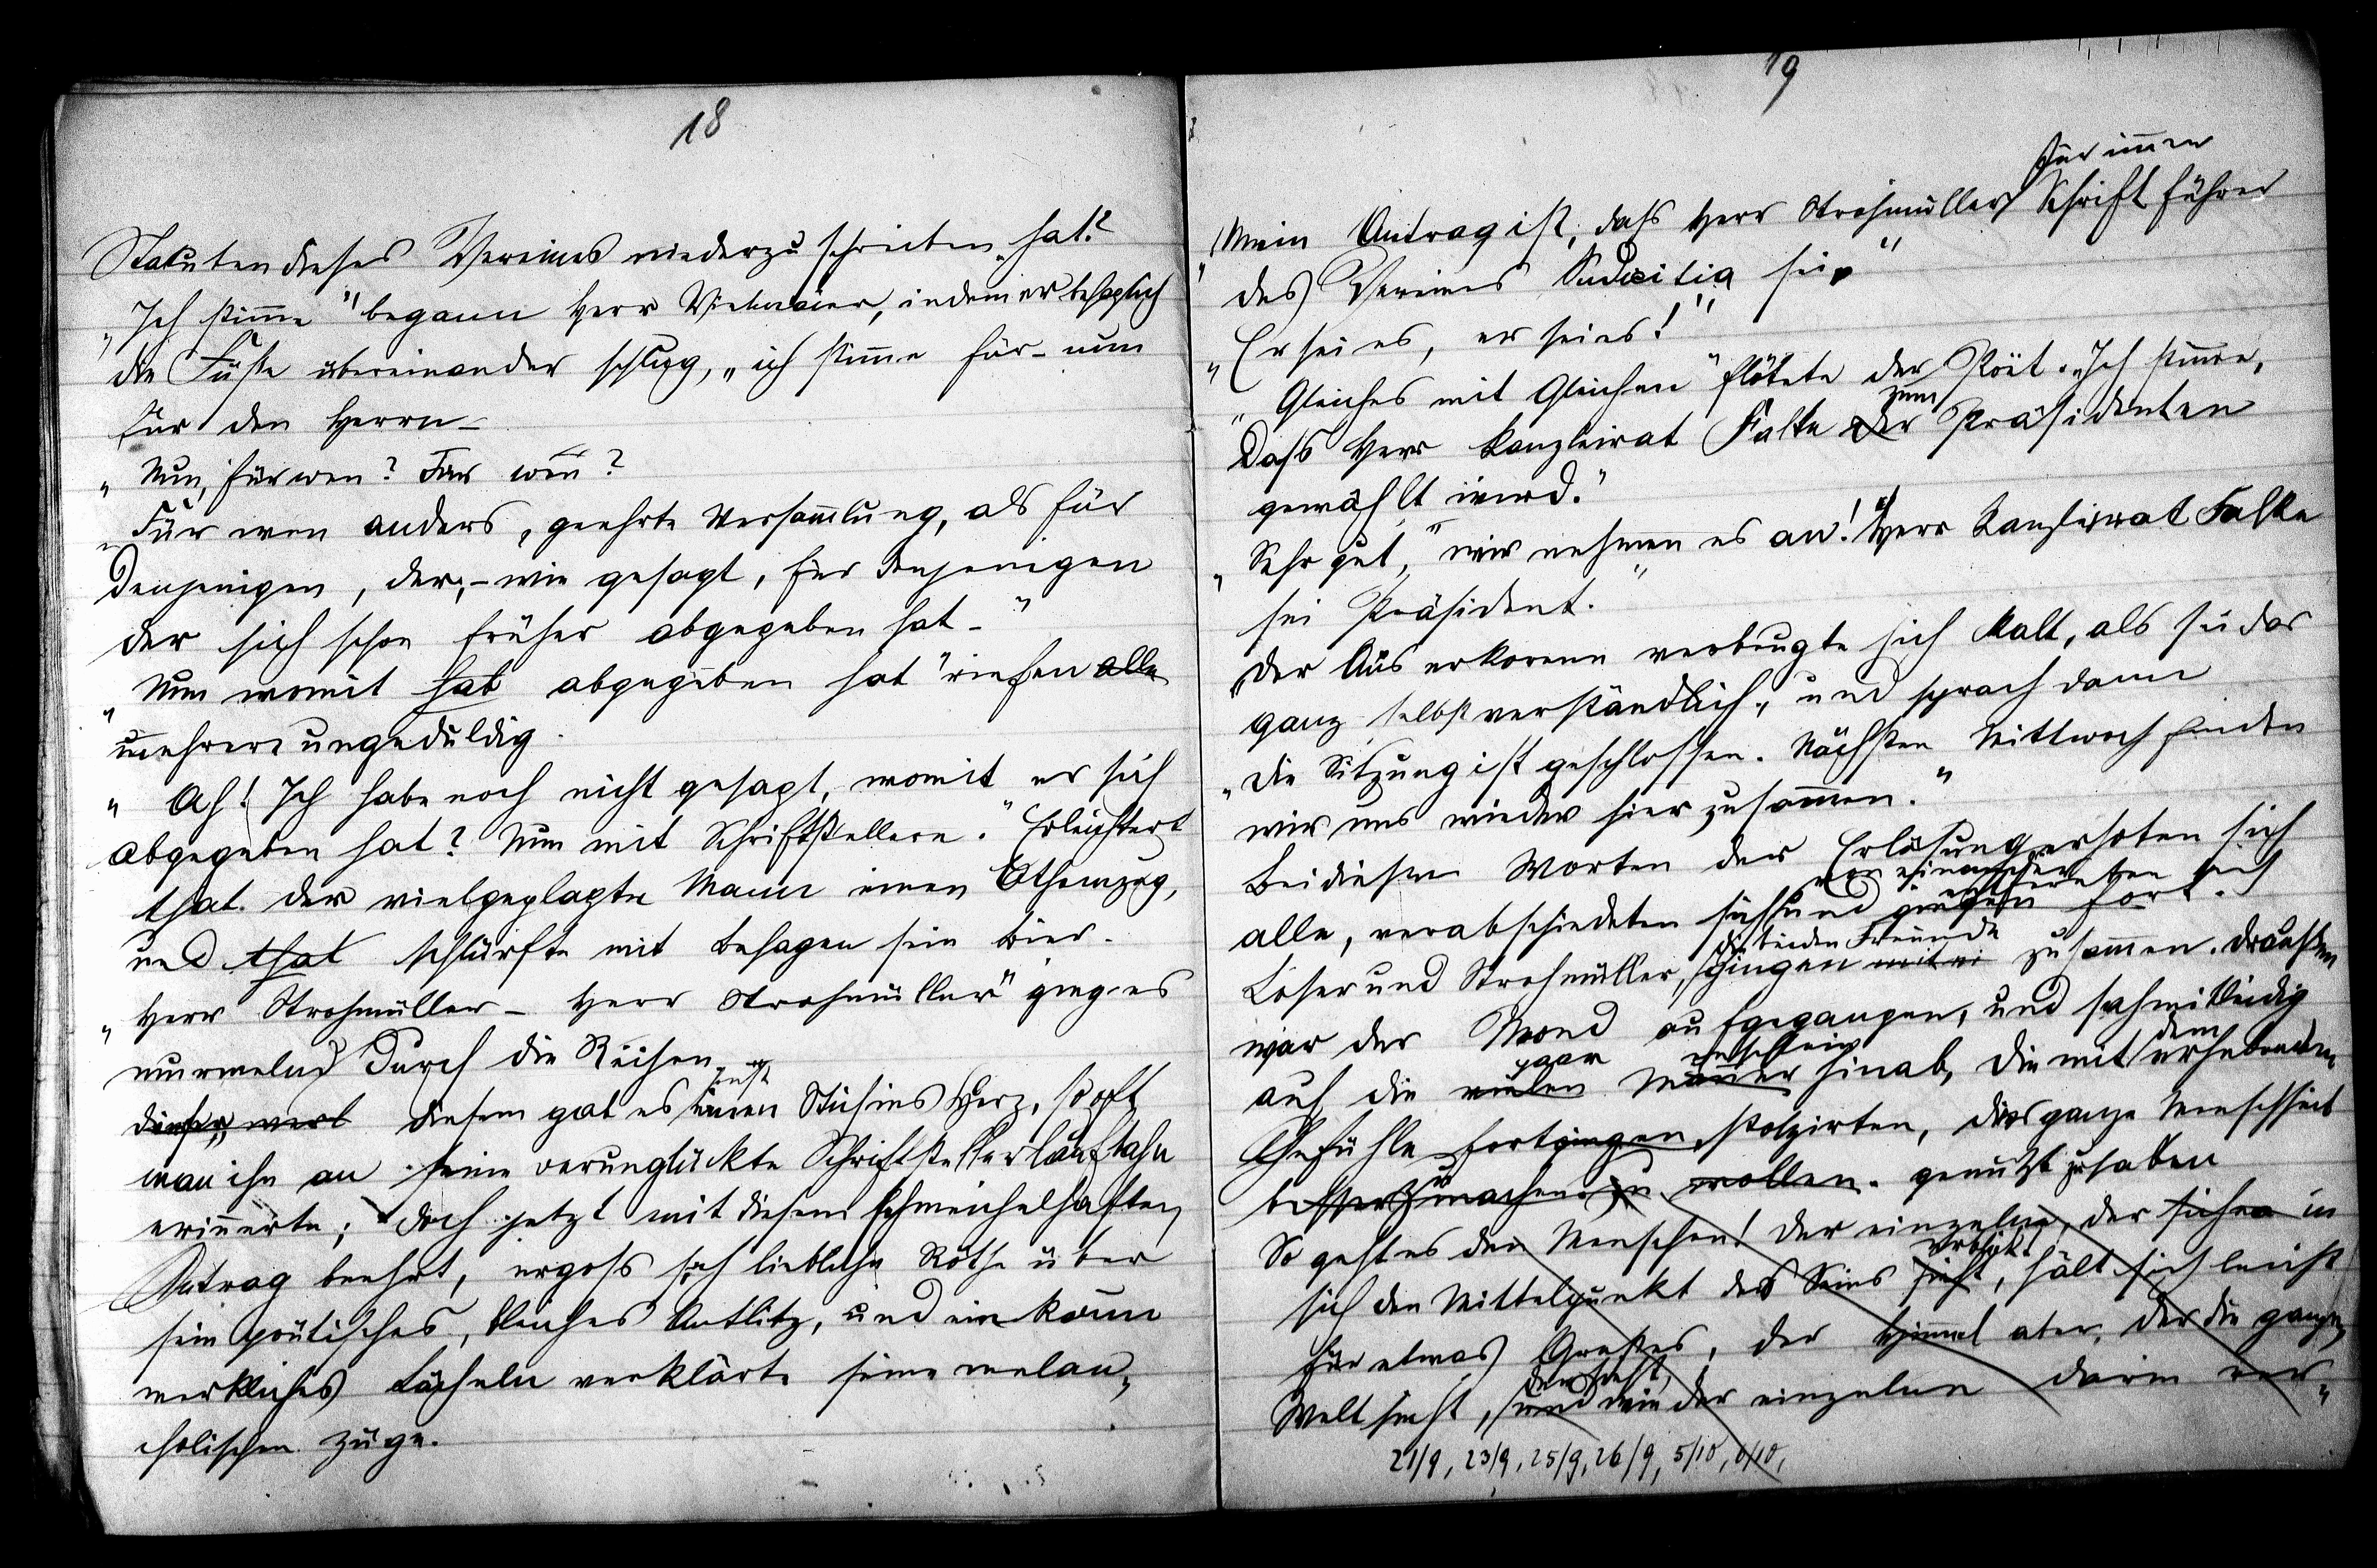 18
Statuten dieses Vereines niederzuschreiben hat?
„Ich stimme" begann Herr Viehmaier, indem er behaglich
die Füße übereinander schlug, „ich stimme für – nun
für den Herrn –
„Nun, für wen? Für wen?
„Für wen anders, geehrte Versammlung, als für
denjenigen, der, – wie gesagt, für denjenigen
der sich schon früher abgegeben hat –"
„Nun womit hab abgegeben hat" riefen alle
mehrere ungeduldig.
„Ah! Ich habe noch nicht gesagt, womit er sich
abgegeben hat? Nun mit Schriftstellern." Erleichtert
that der vielgeplagte Mann einen Athemzug,
und that schlürfte mit Behagen sein Bier.
„Herr Strohmüller – Herr Strohmüller" ging es
murmelnd durch die Reihen.
sonst
diesem gab es einen Stich ins Herz, so oft
man ihn an seine verunglückte Schriftstellerlaufbahn
erinnerte; doch jetzt mit diesem schmeichelhaften
Antrag beehrt, ergoß sich liebliche Röthe über
sein poetisches, bleiches Antlitz, und ein kaum
merkliches Lächeln verklärte seine melan„
cholischen Züge.
19
für immer
„Mein Antrag ist, daß Herr Strohmüller Schriftführer
des Vereines Pudicitia sei."
„Er sei es, er sei es!"
„Gleiches mit Gleichem" flötete der Poet. „Ich stimme,
zum
daß Herr Kanzleirat Falke der Präsidenten
gewählt werd."
„Sehr gut, wir nehmen es an! Herr Kanzleirat Falke
sei Präsident."
Der Auserkorene verbeugte sich kalt, als sei das
ganz selbstverständlich, und sprach dann
„Die Sitzung ist geschlossen. Nächsten Mittwoch finden
wir uns wieder hier zusammen."
Bei diesen Worten der Erlösung erhoben sich
von einander
alle, verabschiedeten sich und gingen fort.
entfernten sich
die beiden Freunde
Loser und Strohmüller, gingen mit zusammen. Draußen
war der Mond aufgegangen, und sah mitleidig
paar dem
auf die vielen Männer hinab, die mit erhebenden
Gefühle fortgingen stolzirten, die ganze Menschheit
besser zu machen zu wollen. genützt zu haben
So geht es den Menschen! Der einzelne, der sich in
erblickt
sich den Mittelpunkt des Seins sieht, hält sich leicht
für etwas Großes, der Himmel aber, der die ganze
Welt sieht, und wie der einzelne darin ver„
21/9, 23/9, 25/9, 26/9, 5/10, 6/10,